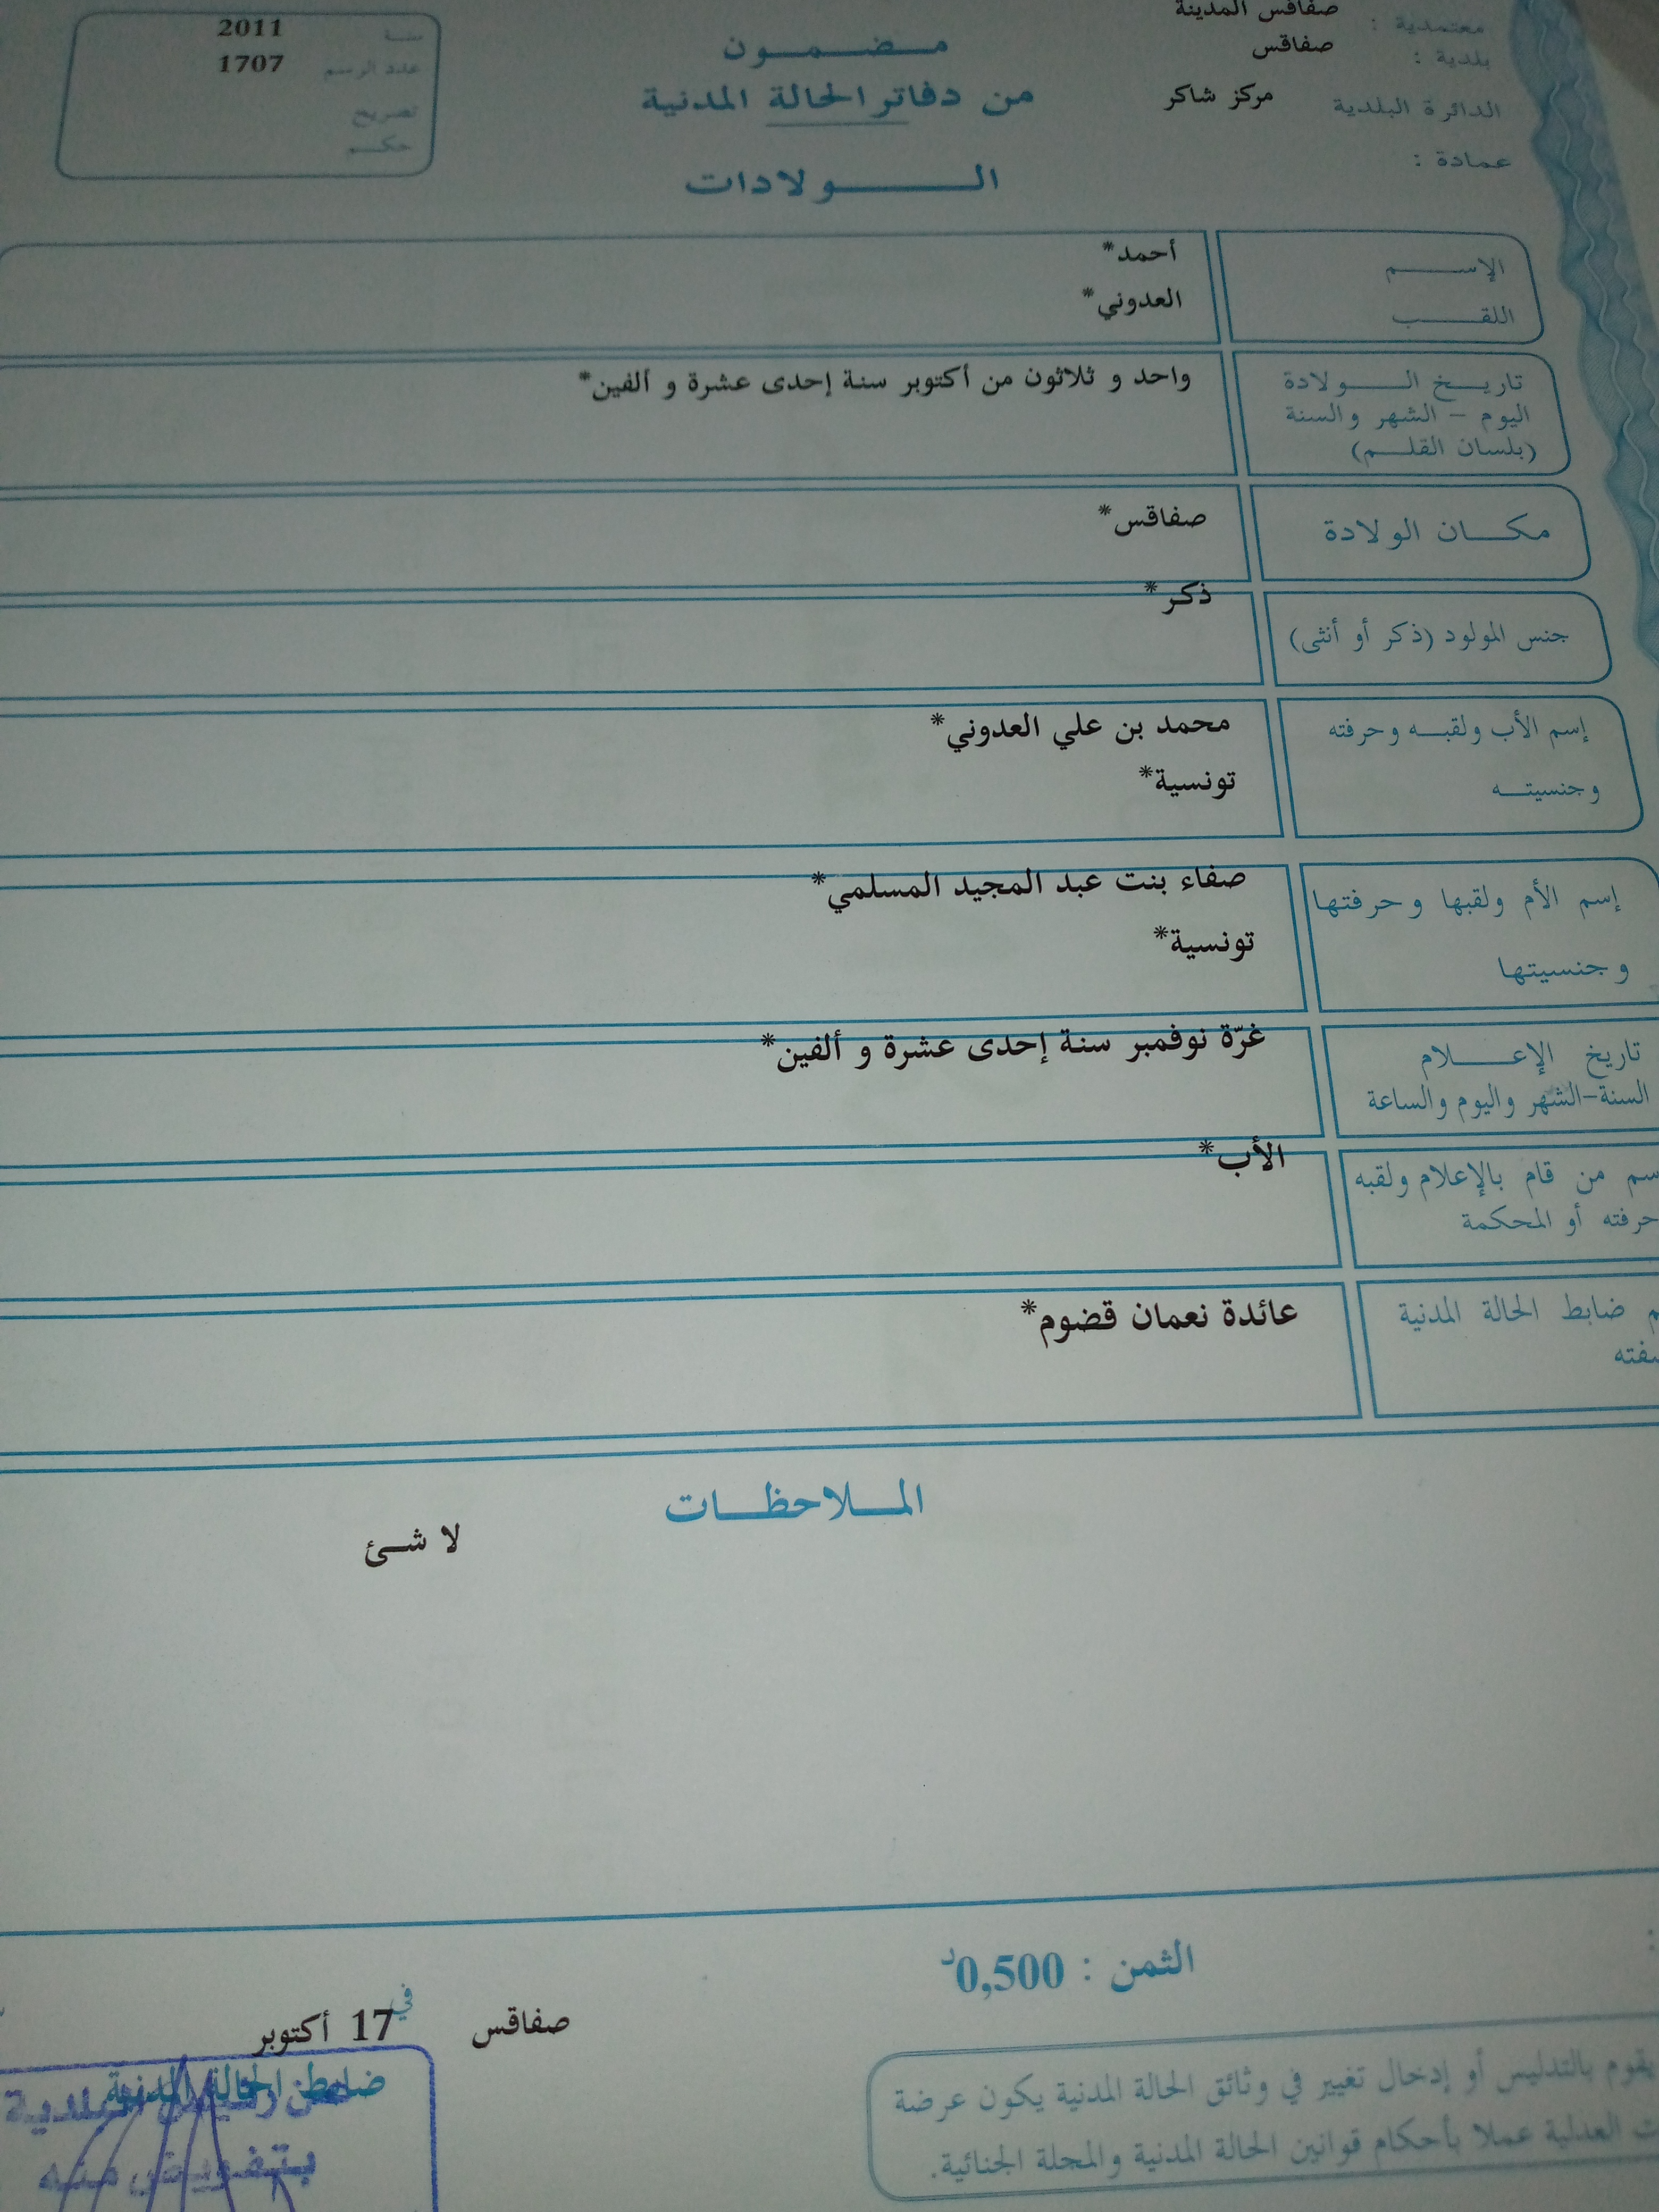 معتمدية : صفاقس المدينة
بلدية : صفاقس
الدائرة البلدية مركز شاكر
عمادة :
مضمون
من دفاتر الحالة المدنية
الولادات
سنة 2011
عدد الرسم 1707
تصريح
حكم
الإسم أحمد*
اللقب العدوني*
تاريخ الولادة واحد و ثلاثون من أكتوبر سنة إحدى عشرة و ألفين*
اليوم - الشهر والسنة
(بلسان القلم)
مكان الولادة صفاقس*
جنس المولود (ذكر أو أنثى) ذكر*
إسم الأب ولقبه وحرفته محمد بن علي العدوني*
وجنسيته تونسية*
إسم الأم ولقبها وحرفتها صفاء بنت عبد المجيد المسلمي*
وجنسيتها تونسية*
تاريخ الإعلام غرّة نوفمبر سنة إحدى عشرة و ألفين*
السنة-الشهر واليوم والساعة
سم من قام بالإعلام ولقبه الأب*
حرفته أو المحكمة
م ضابط الحالة المدنية عائدة نعمان قضوم*
الملاحظات
لا شئ
الثمن : 0,500د
صفاقس في 17 أكتوبر
ضابط الحالة المدنية
عن رئيس البلدية
بتفويض منه
يقوم بالتدليس أو إدخال تغيير في وثائق الحالة المدنية يكون عرضة
ت العدلية عملا بأحكام قوانين الحالة المدنية والمجلة الجنائية.